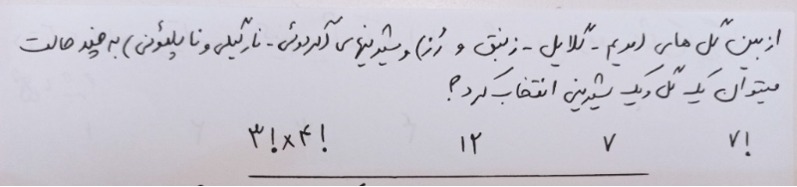 از بین گل های (مریم - گلایل - زنبق و رُز) و شیرینیهای (گردوئی - نارگیلی و ناپلئونی) به چند حالت
میتوان یک گل و یک شیرینی انتخاب کرد؟
۷! ۷ ۱۲ ۳!×۴!